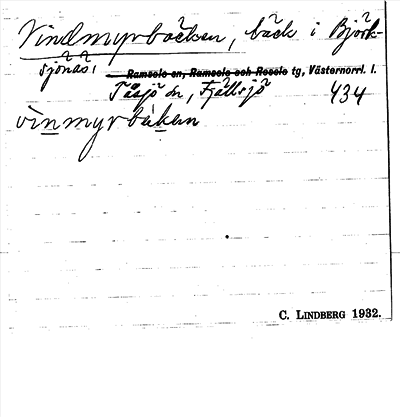 Vindmyrbäcken, bäck i Björk-
sjönäs,
Ramsele sn, Ramsele och Resele tg, Västernorrl. l.
Tåsjö sn, Fjällsjö 434
vìnmyrbäkan
C. LINDBERG 1932.